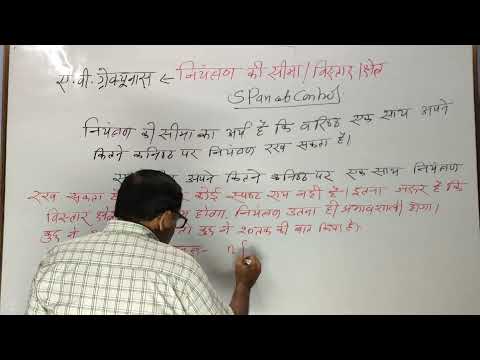 ए. वी. ग्रेक्यूनास ← नियंत्रण की सीमा / विस्तार / क्षेत्र
Span of Control
नियंत्रण की सीमा का अर्थ है कि वरिष्ठ एक साथ अपने
कितने कनिष्ठ पर नियंत्रण रख सकता है।
अपने कितने कनिष्ठ पर एक साथ नियंत्रण
रख सकता है कोई स्पष्ट राय नहीं है। इतना जरूर है कि
विस्तार होगा, नियंत्रण उतना ही प्रभावशाली होगा।
कुछ ने कुछ ने 20 तक की बात किया है।
n [